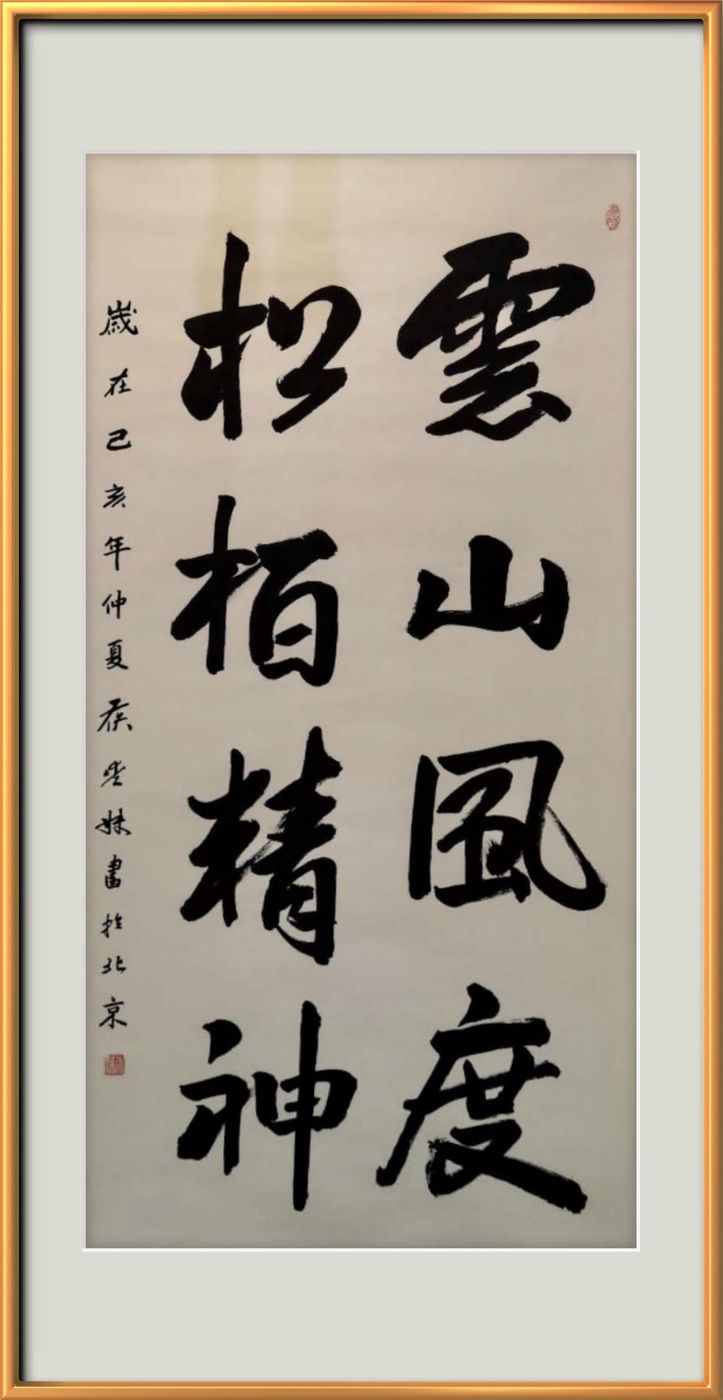 雲山風度
松柏精神
歲在己亥年仲夏侯妹書於北京